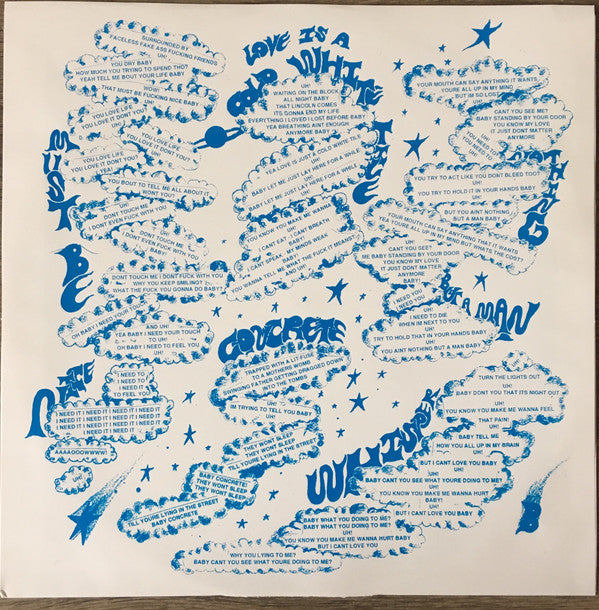 MUST BE NICE
SURROUNDED BY
FACELESS FAKE ASS FUCKING FRIENDS
UH!
YOU DRY BABY
HOW MUCH YOU TRYING TO SPEND THO?
YEAH TELL ME BOUT YOUR LIFE BABY
WOW!
THAT MUST BE FUCKING NICE BABY
UH!
YOU LOVE LIFE
YOU LOVE IT DONT YOU?
YOU LOVE LIFE
YOU LOVE IT DON'T YOU?
YOU LOVE LIFE
YOU LOVE IT DONT YOU?
YEA!
YOU BOUT TO TELL ME ALL ABOUT IT
WONT YOU?
UH!
DONT TOUCH ME
I DONT EVEN FUCK WITH YOU
UH!
DONT TOUCH ME
I DONT EVEN FUCK WITH YOU
BABY!
DONT TOUCH ME I DONT FUCK WITH YOU
WHY YOU KEEP SMILING?
WHAT THE FUCK YOU GONNA DO BABY?
OH BABY I NEED YOUR
AND UH!
YEA BABY I NEED YOUR TOUCH
TO UH!
OH BABY I NEED TO FEEL YOU
UH!
I NEED TO
I NEED TO
I NEED IT
TO FEEL YOU
I NEED IT I NEED IT I NEED IT I NEED IT
I NEED IT I NEED IT I NEED IT I NEED IT
I NEED IT I NEED IT I NEED IT I NEED IT
I NEED IT I NEED IT I NEED IT I NEED IT
AAAAOOOWWWW!
UH!
LOVE IS A
COLD WHITE TILE
UH!
WAITING ON THE BLOCK
ALL NIGHT BABY
THAT LINCOLN COMES
ITS GONNA END MY LIFE
EVERYTHING I LOVED I LOST BEFORE BABY
YEA BREATHING AINT ENOUGH
ANYMORE BABY
YEA LOVE IS JUST A COLD WHITE TILE
UH!
BABY LET ME JUST LAY HERE FOR A WHILE
UH!
BABY LET ME JUST LAY HERE FOR A WHILE
YOU KNOW YOU MAKE ME WANNA
UH!
I CANT EAT, I CANT BREATH
UH!
I CANT SPEAK, MY MINDS WEAK
BABY!
YOU WANNA TELL ME WHAT THE FUCK IT MEANS?
AND UH!
CONCRETE
TRAPPED WITH A LIT FUSE
TO A MOTHERS WOMB
SWINGING FATHER GETTING DRAGGED DOWN
INTO THE TOMBS
UH!
IM TRYING TO TELL YOU BABY
UH!
THEY WONT SLEEP
THEY WONT SLEEP
TILL YOU'RE LYING IN THE STREET
BABY CONCRETE!
THEY WONT SLEEP
THEY WONT SLEEP
TILL YOURE LYING IN THE STREET
BABY CONCRETE
NOTHING
BUT A MAN
YOUR MOUTH CAN SAY ANYTHING IT WANTS
YOURE ALL UP IN MY MIND
BUT IM SO LOST
CANT YOU SEE ME?
BABY STANDING BY YOUR DOOR
YOU KNOW MY LOVE
IT JUST DONT MATTER
ANYMORE
UH!
YOU NEED TO
YOU NEED TO
YOU TRY TO ACT LIKE YOU DONT BLEED TOO?
UH!
YOU TRY TO HOLD IT IN YOUR HANDS BABY
UH!
BUT YOU AINT NOTHING
BUT A MAN BABY
YOUR MOUTH CAN SAY ANYTHING THAT IT WANTS
YEA YOURE ALL UP IN MY MIND BUT WHATS THE COST?
UH!
CANT YOU SEE?
ME BABY STANDING BY YOUR DOOR
YOU KNOW MY LOVE
IT JUST DONT MATTER
ANYMORE
BABY!
I NEED YOU
I NEED YOU
UH!
I NEED TO DIE
WHEN IN NEXT TO YOU
UH!
TRY TO HOLD THAT IN YOUR HANDS BABY
UH!
YOU AINT NOTHING BUT A MAN BABY
WHISPER
TURN THE LIGHTS OUT
UH!
BABY DON'T YOU THAT ITS NIGHT OUT
UH!
YOU KNOW YOU MAKE ME WANNA FEEL
THAT PAIN!
UH!
BABY TELL ME
HOW YOU ALL UP IN MY BRAIN
UH!
BUT I CANT LOVE YOU BABY
UH!
BABY CANT YOU SEE WHAT YOURE DOING TO ME?
UH!
YOU KNOW YOU MAKE ME WANNA HURT
BABY!
UH!
BUT I CANT LOVE YOU BABY
BABY WHAT YOU DOING TO ME?
BABY WHAT YOU DOING TO ME?
UH!
YOU KNOW YOU MAKE ME WANNA HURT BABY
BUT I CANT LOVE YOU
WHY YOU LYING TO ME?
BABY CANT YOU SEE WHAT YOURE DOING TO ME?